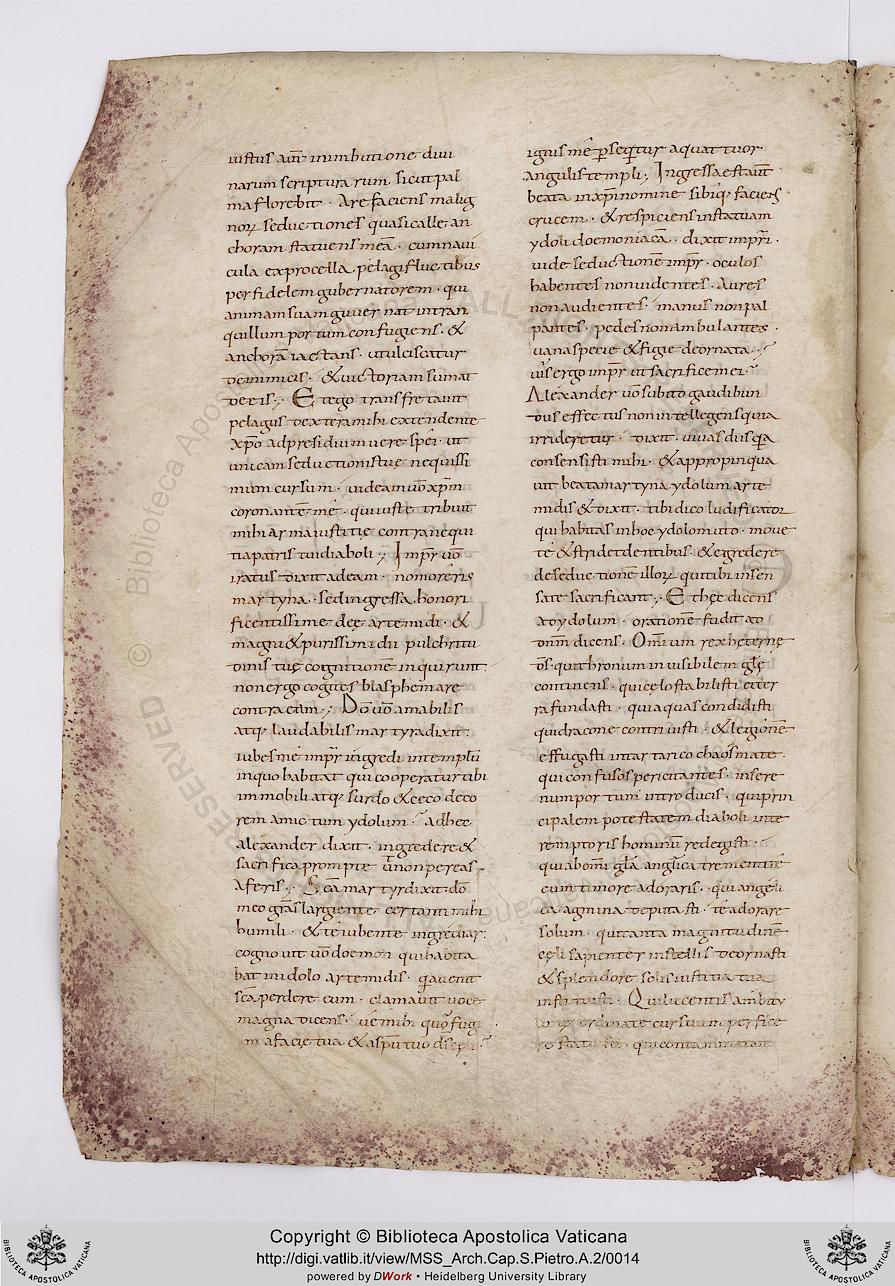 iustus aut inimbutione divi
narum scripturarum. sicut pal
ma florebit. Are faciens malig
norum seductiones quasi calle. an
choram statuens mea. cum navi
cula ex procella pelagi fluctibus
per fidelem gubernatorem. qui
animam suam guvernat intran
quillum portum confugiens. &
anchora iactans. ut ulciscatur
de inimicis. & victoriam sumat
de eis; Et ego transfretavit
pelagus dextera mihi extendente
xpo ad presidium vere spei. ut
seductionis tuę nequissi
mum cursum. videam uo xpm
coronante me. qui iuste tribuit
mihi arma iustitie contra nequi
tia patris tui diaboli; Impr uo
iratus dixit ad eam. no moreris
martyna. sed ingressa honori
ficentissime deę artemidi. &
magni & purissimi dii pulchritu
dinis tuę cognitione inquirunt.
non ergo cogites blasphemare
contra eum; Do uo amabilis
atq; laudabilis martyra dixit:
iubes me impr ingredi in templu
in quo habitat qui cooperatur tibi
immobili atq; surdo & ceco deco
rem amictum ydolum. ad hec
alexander dixit. ingredere &
sacrifica prompte ut non pereas
a feris; Sca martyr dixit. do
meo gras largiente certanti mihi
humili. & te iubente ingrediar:
cognovit uo doemon qui habita
bat in idolo artemidis. qa venit
sca perdere eum. clamavit voce
magna dicens. ve mihi quo fug
a facie tua & a spu tuo
ignis me psequitur a quattuor
angulis templi; Ingressa est aut
beata in xpi nomine sibiq; faciens
crucem. & respiciens in statuam
ydoli doemoniaca. dixit impri.
vide seductione impr. oculos
habentes non videntes. Aures
non audientes. manus non pal
pantes. pedes non ambulantes.
vana specie & figie deornata.
vis ergo impr ut sacrificem ei.
Alexander uo subito gaudibun
dus effectus non intellegens quia
irrideretur. dixit. vivas diis qa
consensisti mihi. & appropinqua
vit beata martyna ydolum arte
midis & dixit. tibi dico ludificator
qui habitas in hoc ydolo muto. move
te & stridet dentibus. & egredere
de seductione illorum qui tibi insen
sate sacrificant; Et hęc dicens
ad ydolum. oratione fudit ad
dnm dicens. Omium rex & eterne
ds qui thronum invisibilem glę
continens. qui cęlo stabilisti & ter
ra fundasti. qui aquas condidisti
qui dracone contrivisti. & legione
effugasti in tartarico chaos mate.
qui confusos pericitantes. in sere
num portum introducis. qui prin
cipalem potestatem diaboli inte
remptoris hominu redegisti.
qui ab omi gla anglica trementium
cum timore adoraris. qui angeli
ca agmina deputasti. te adorare
solum. qui tanta magnitudine
cęli sapienter in stellis deornasti
& splendore solis iustitia tua
Qui lucentis
cursuum perfice
re